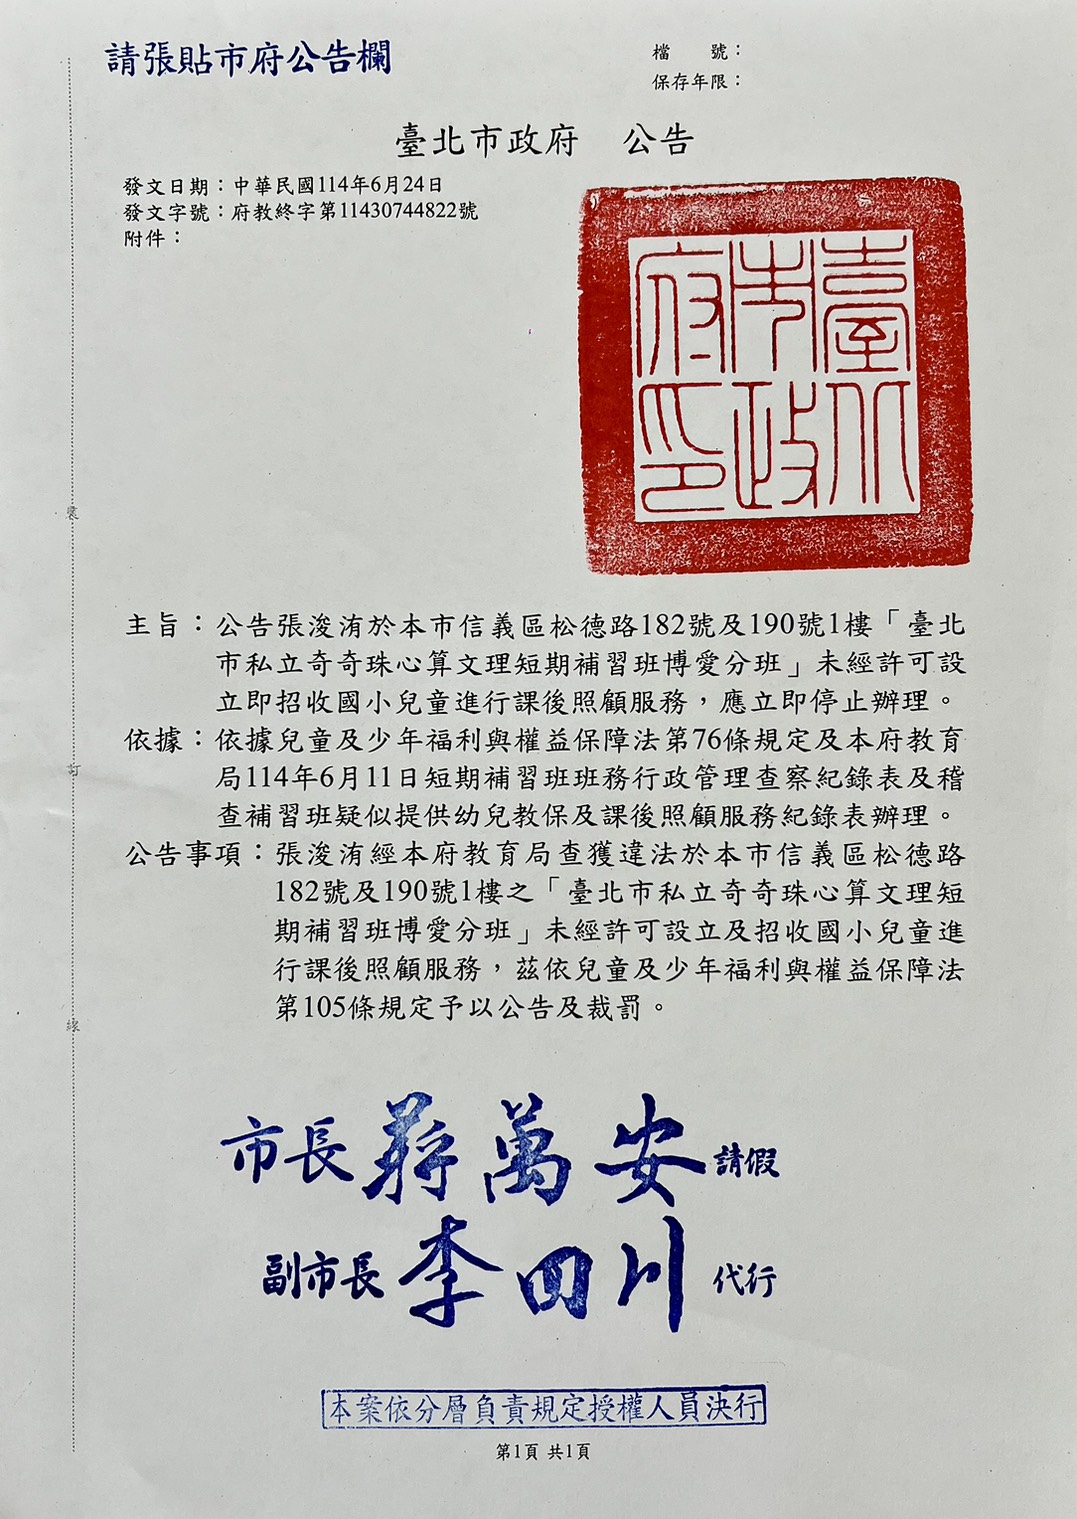 請張貼市府公告欄
檔　　號：
保存年限：
臺北市政府　公告
發文日期：中華民國114年6月24日
發文字號：府教終字第11430744822號
附件：
臺北市政府印
主旨：公告張浚洧於本市信義區松德路182號及190號1樓「臺北
市私立奇奇珠心算文理短期補習班博愛分班」未經許可設
立即招收國小兒童進行課後照顧服務，應立即停止辦理。
依據：依據兒童及少年福利與權益保障法第76條規定及本府教育
局114年6月11日短期補習班班務行政管理查察紀錄表及稽
查補習班疑似提供幼兒教保及課後照顧服務紀錄表辦理。
公告事項：張浚洧經本府教育局查獲違法於本市信義區松德路
182號及190號1樓之「臺北市私立奇奇珠心算文理短
期補習班博愛分班」未經許可設立及招收國小兒童進
行課後照顧服務，茲依兒童及少年福利與權益保障法
第105條規定予以公告及裁罰。
裝
訂
線
市長蔣萬安請假
副市長李四川代行
本案依分層負責規定授權人員決行
第1頁 共1頁